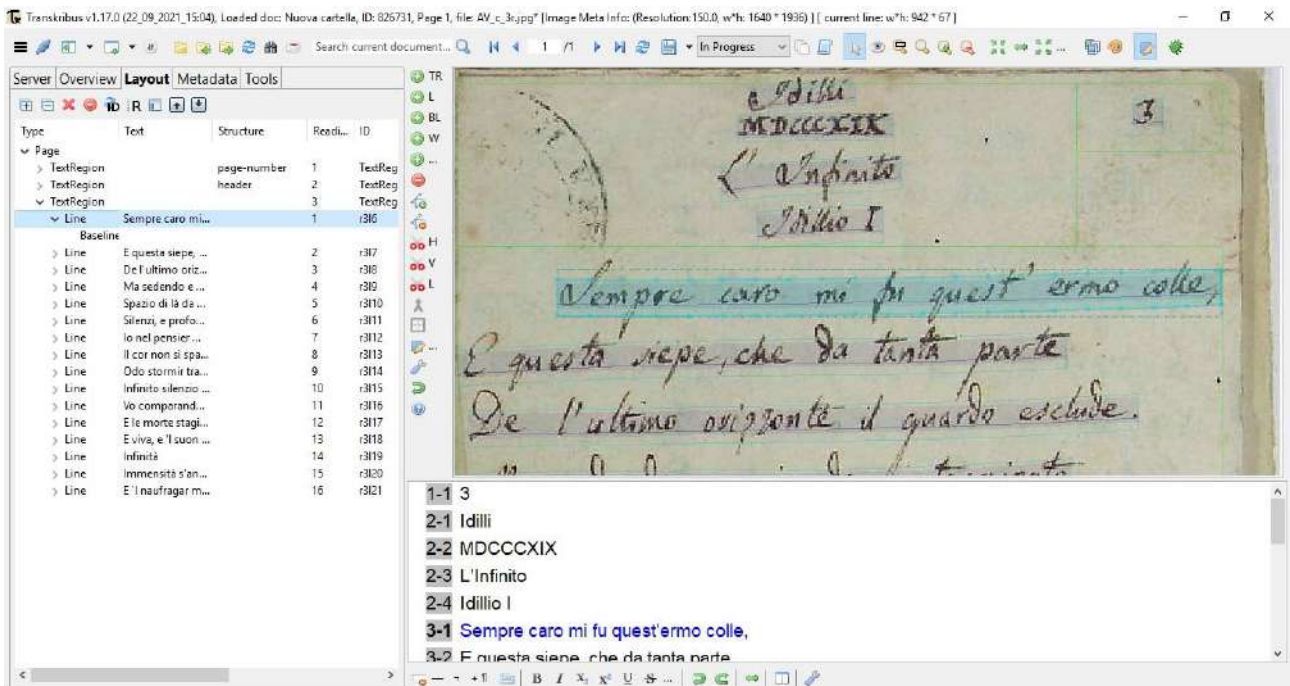 Transkribus v1.17.0 (22_09_2021_15:04), Loaded doc: Nuova cartella, ID: 826731, Page 1, file: AV_c_3r.jpg* [Image Meta Info: (Resolution:150.0, w*h: 1640 * 1936) ] [ current line: w*h: 942 * 67 ]
Search current document... 1 /1 In Progress
Server Overview Layout Metadata Tools
Type Text Structure Readi... ID
Page
TextRegion page-number 1 TextReg
TextRegion header 2 TextReg
TextRegion 3 TextReg
Line Sempre caro mi... 1 r3l6
Baseline
Line E questa siepe, ... 2 r3l7
Line De l'ultimo oriz... 3 r3l8
Line Ma sedendo e ... 4 r3l9
Line Spazio di là da ... 5 r3l10
Line Silenzi, e profo... 6 r3l11
Line Io nel pensier ... 7 r3l12
Line Il cor non si spa... 8 r3l13
Line Odo stormir tra... 9 r3l14
Line Infinito silenzio ... 10 r3l15
Line Vo comparand... 11 r3l16
Line E le morte stagi... 12 r3l17
Line E viva, e 'l suon ... 13 r3l18
Line Infinità 14 r3l19
Line Immensità s'an... 15 r3l20
Line E 'l naufragar m... 16 r3l21
TR
L
BL
W
...
H
V
L
Idilli
MDCCCXIX
3
L'Infinito
Idillio I
Sempre caro mi fu quest'ermo colle,
E questa siepe, che da tanta parte
De l'ultimo orizzonte il guardo esclude.
1-1 3
2-1 Idilli
2-2 MDCCCXIX
2-3 L'Infinito
2-4 Idillio I
3-1 Sempre caro mi fu quest'ermo colle,
3-2 E questa siepe, che da tanta parte
B I X₁ X² U S ...